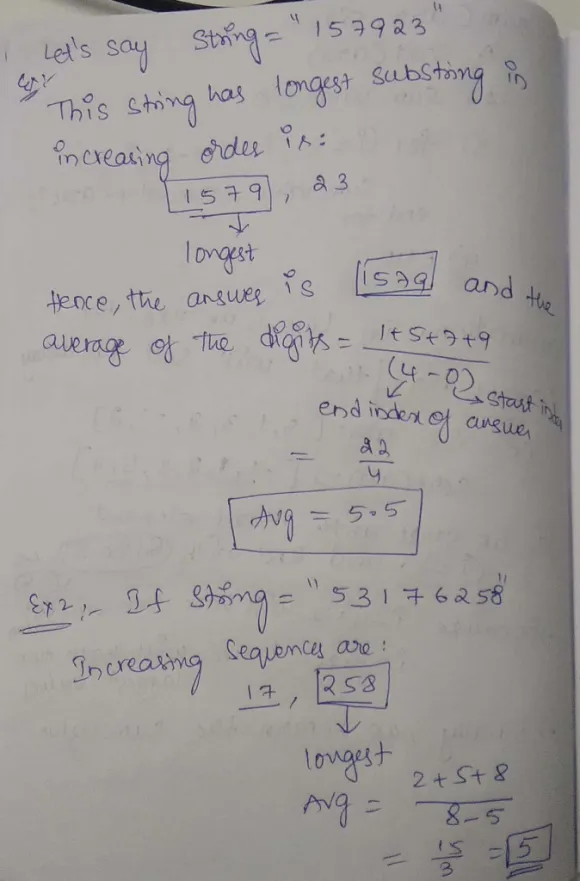 Let's say String = "157923"
Ex:-
This string has longest substring in
increasing order is:
1579, 23
longest
Hence, the answer is 1579 and the
average of the digits = 1+5+7+9
(4-0)
start index
end index of answer
= 22
4
Avg = 5.5
Ex2:- If string = "53176258"
Increasing sequences are:
17, 258
longest
Avg = 2+5+8
8-5
= 15 = 5
3